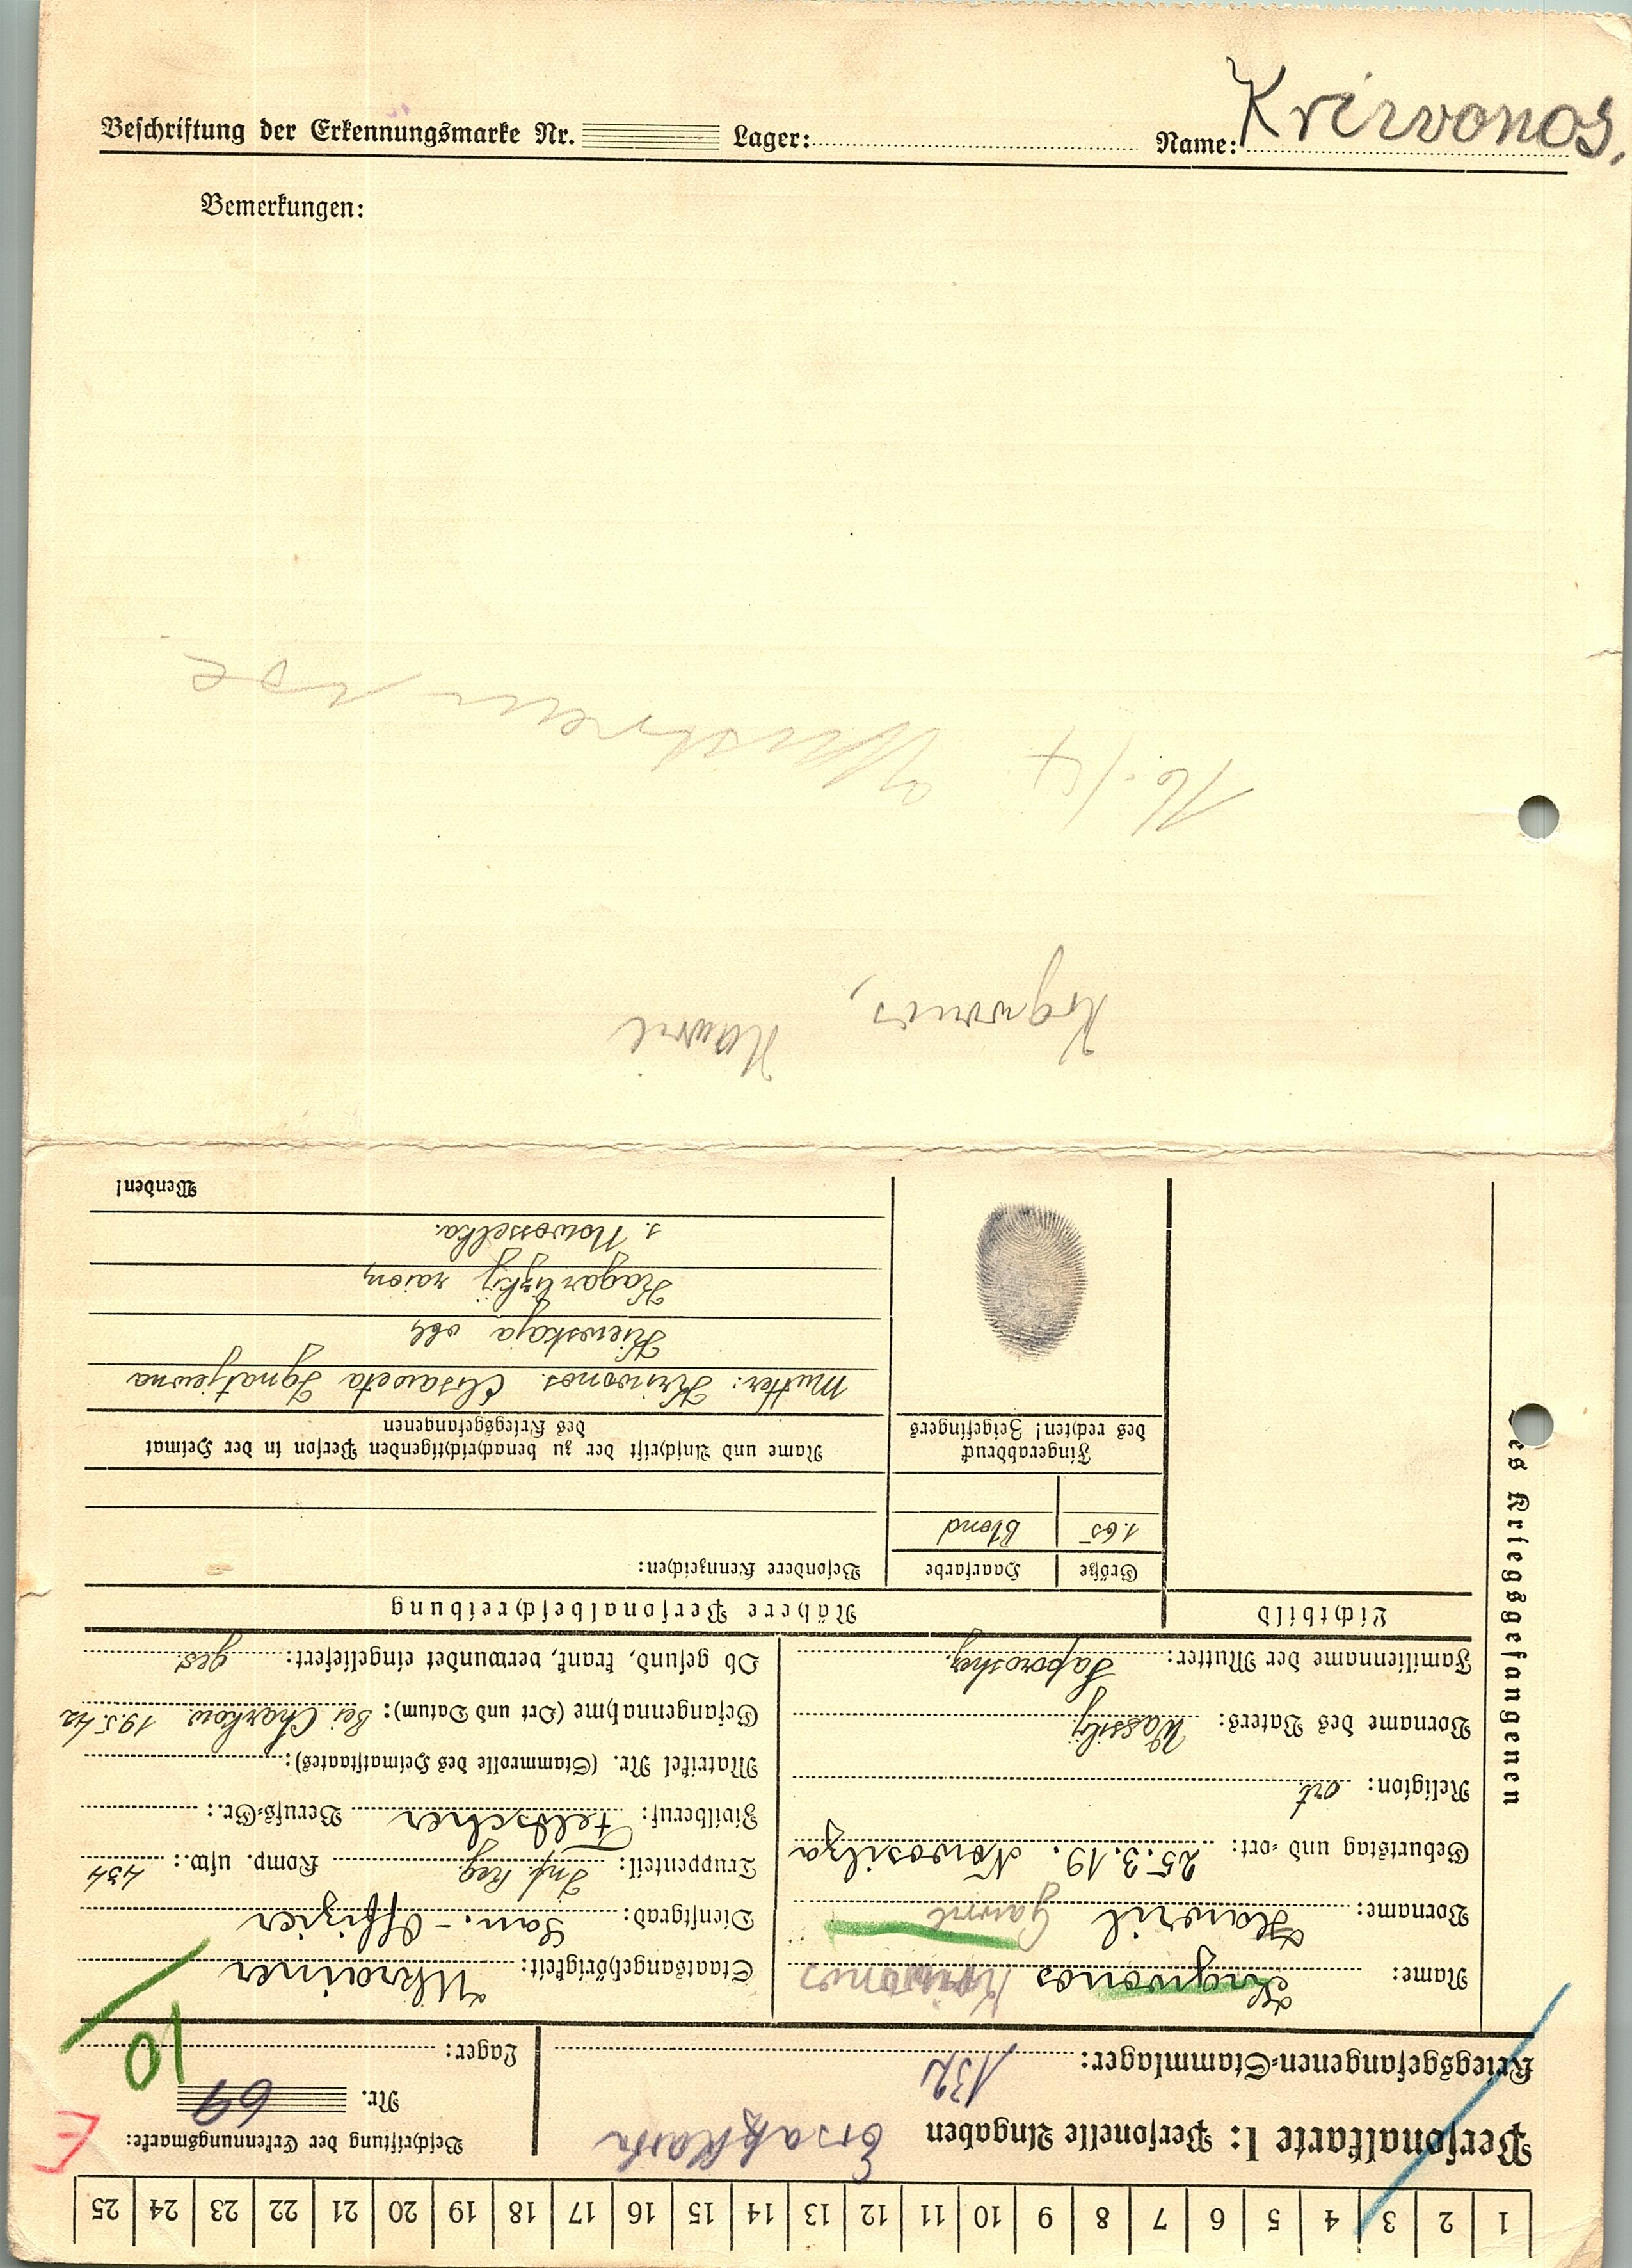 Beschriftung der Erkennungsmarke Nr. Lager: Name: Krivonos.
Bemerkungen:
16./4
Kogwonos, Hawril
1 2 3 4 5 6 7 8 9 10 11 12 13 14 15 16 17 18 19 20 21 22 23 24 25
Personalkarte I: Personelle Angaben
Ersatzkarte
Kriegsgefangenen-Stammlager: 132
Beschriftung der Erkennungsmarke:
Nr. 69
Lager:
E
10
des Kriegsgefangenen
Name: Krogwonos Kriwonos
Vorname: Hawril Gawril
Geburtstag und -ort: 25.3.19. Nowosilza
Religion: ort.
Vorname des Vaters: Wassilij
Familienname der Mutter: Saporoshez
Staatsangehörigkeit: Ukrainer
Dienstgrad: San.-Offizier
Truppenteil: Inf. Reg. Komp. usw.: 434
Zivilberuf: Feldscher Berufs-Gr.:
Matrikel Nr. (Stammrolle des Heimatstaates):
Gefangennahme (Ort und Datum): Bei Charkow. 19.5.42
Ob gesund, krank, verwundet eingeliefert: ges.
Lichtbild
Nähere Personalbeschreibung
Größe Haarfarbe Besondere Kennzeichen:
1.65 Blond
Fingerabdruck
des rechten! Zeigefingers
Name und Anschrift der zu benachrichtigenden Person in der Heimat
des Kriegsgefangenen
Mutter: Kriwonos Elisaweta Ignatjewna
Kiewskaja obl
Kagarlizkij raion
s. Nowosselka.
Wenden!